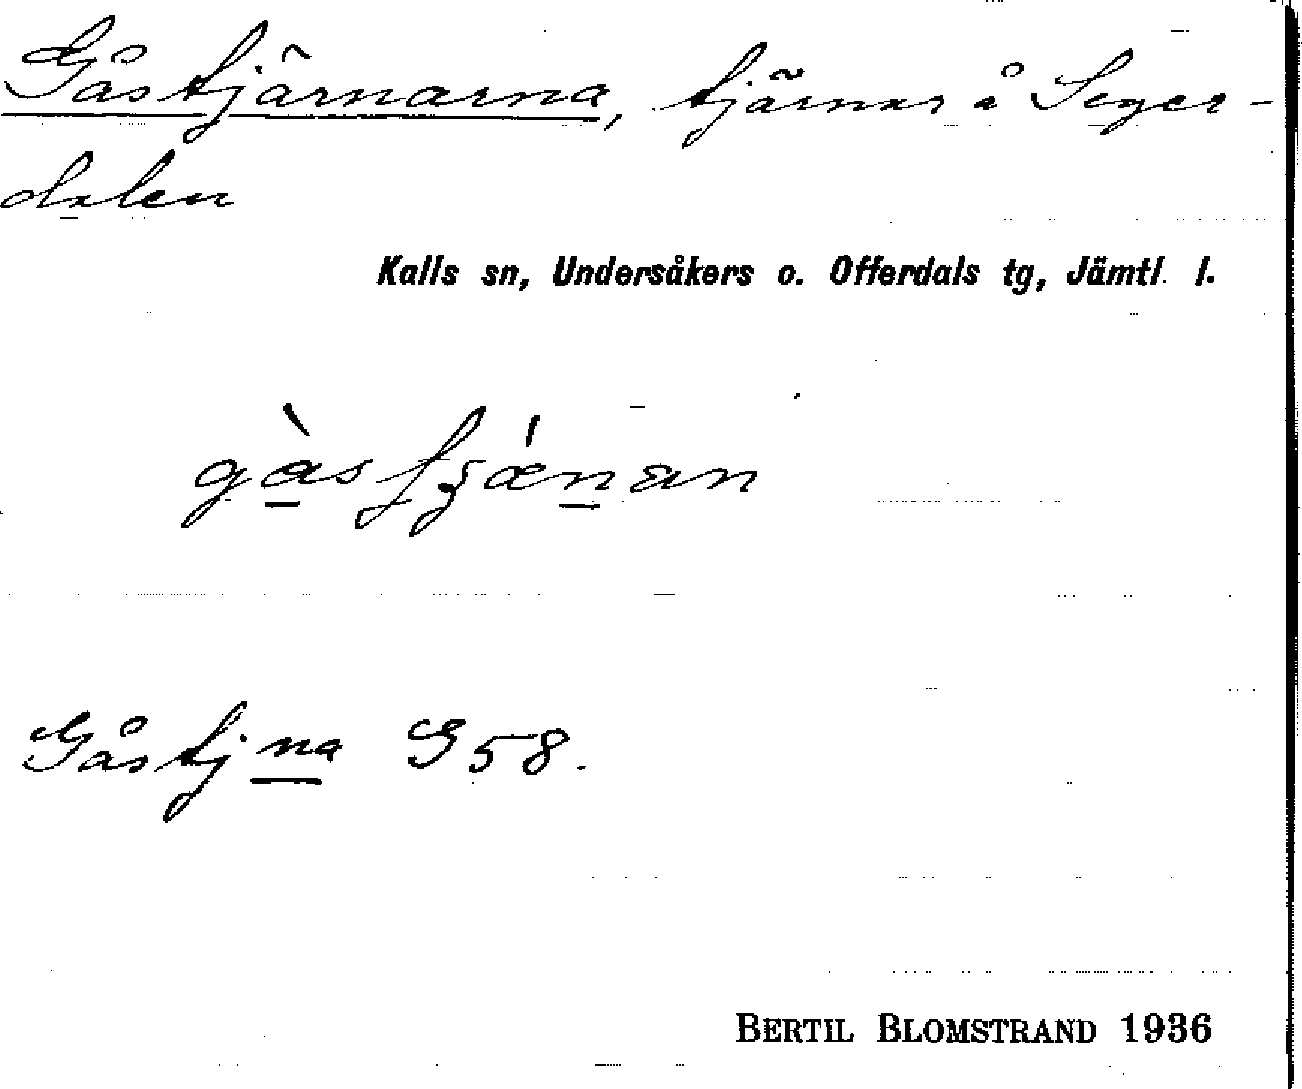 Gåstjärnarna, tjärnar å Seger-
dalen
Kalls sn, Undersåkers o. Offerdals tg, Jämtl. l.
Gåstjna G 58.
BERTIL BLOMSTRAND 1936